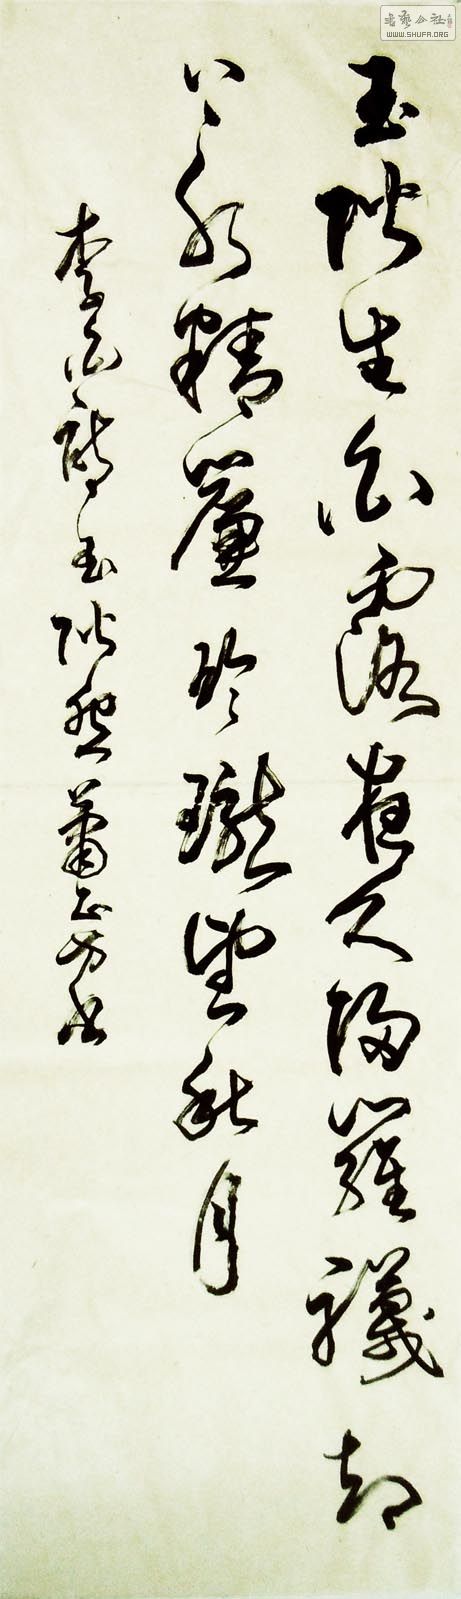 書藝公社
WWW.SHUFA.ORG
玉階生白露夜久侵羅襪却
下水精簾玲瓏望秋月
李白詩玉階怨蕭方書